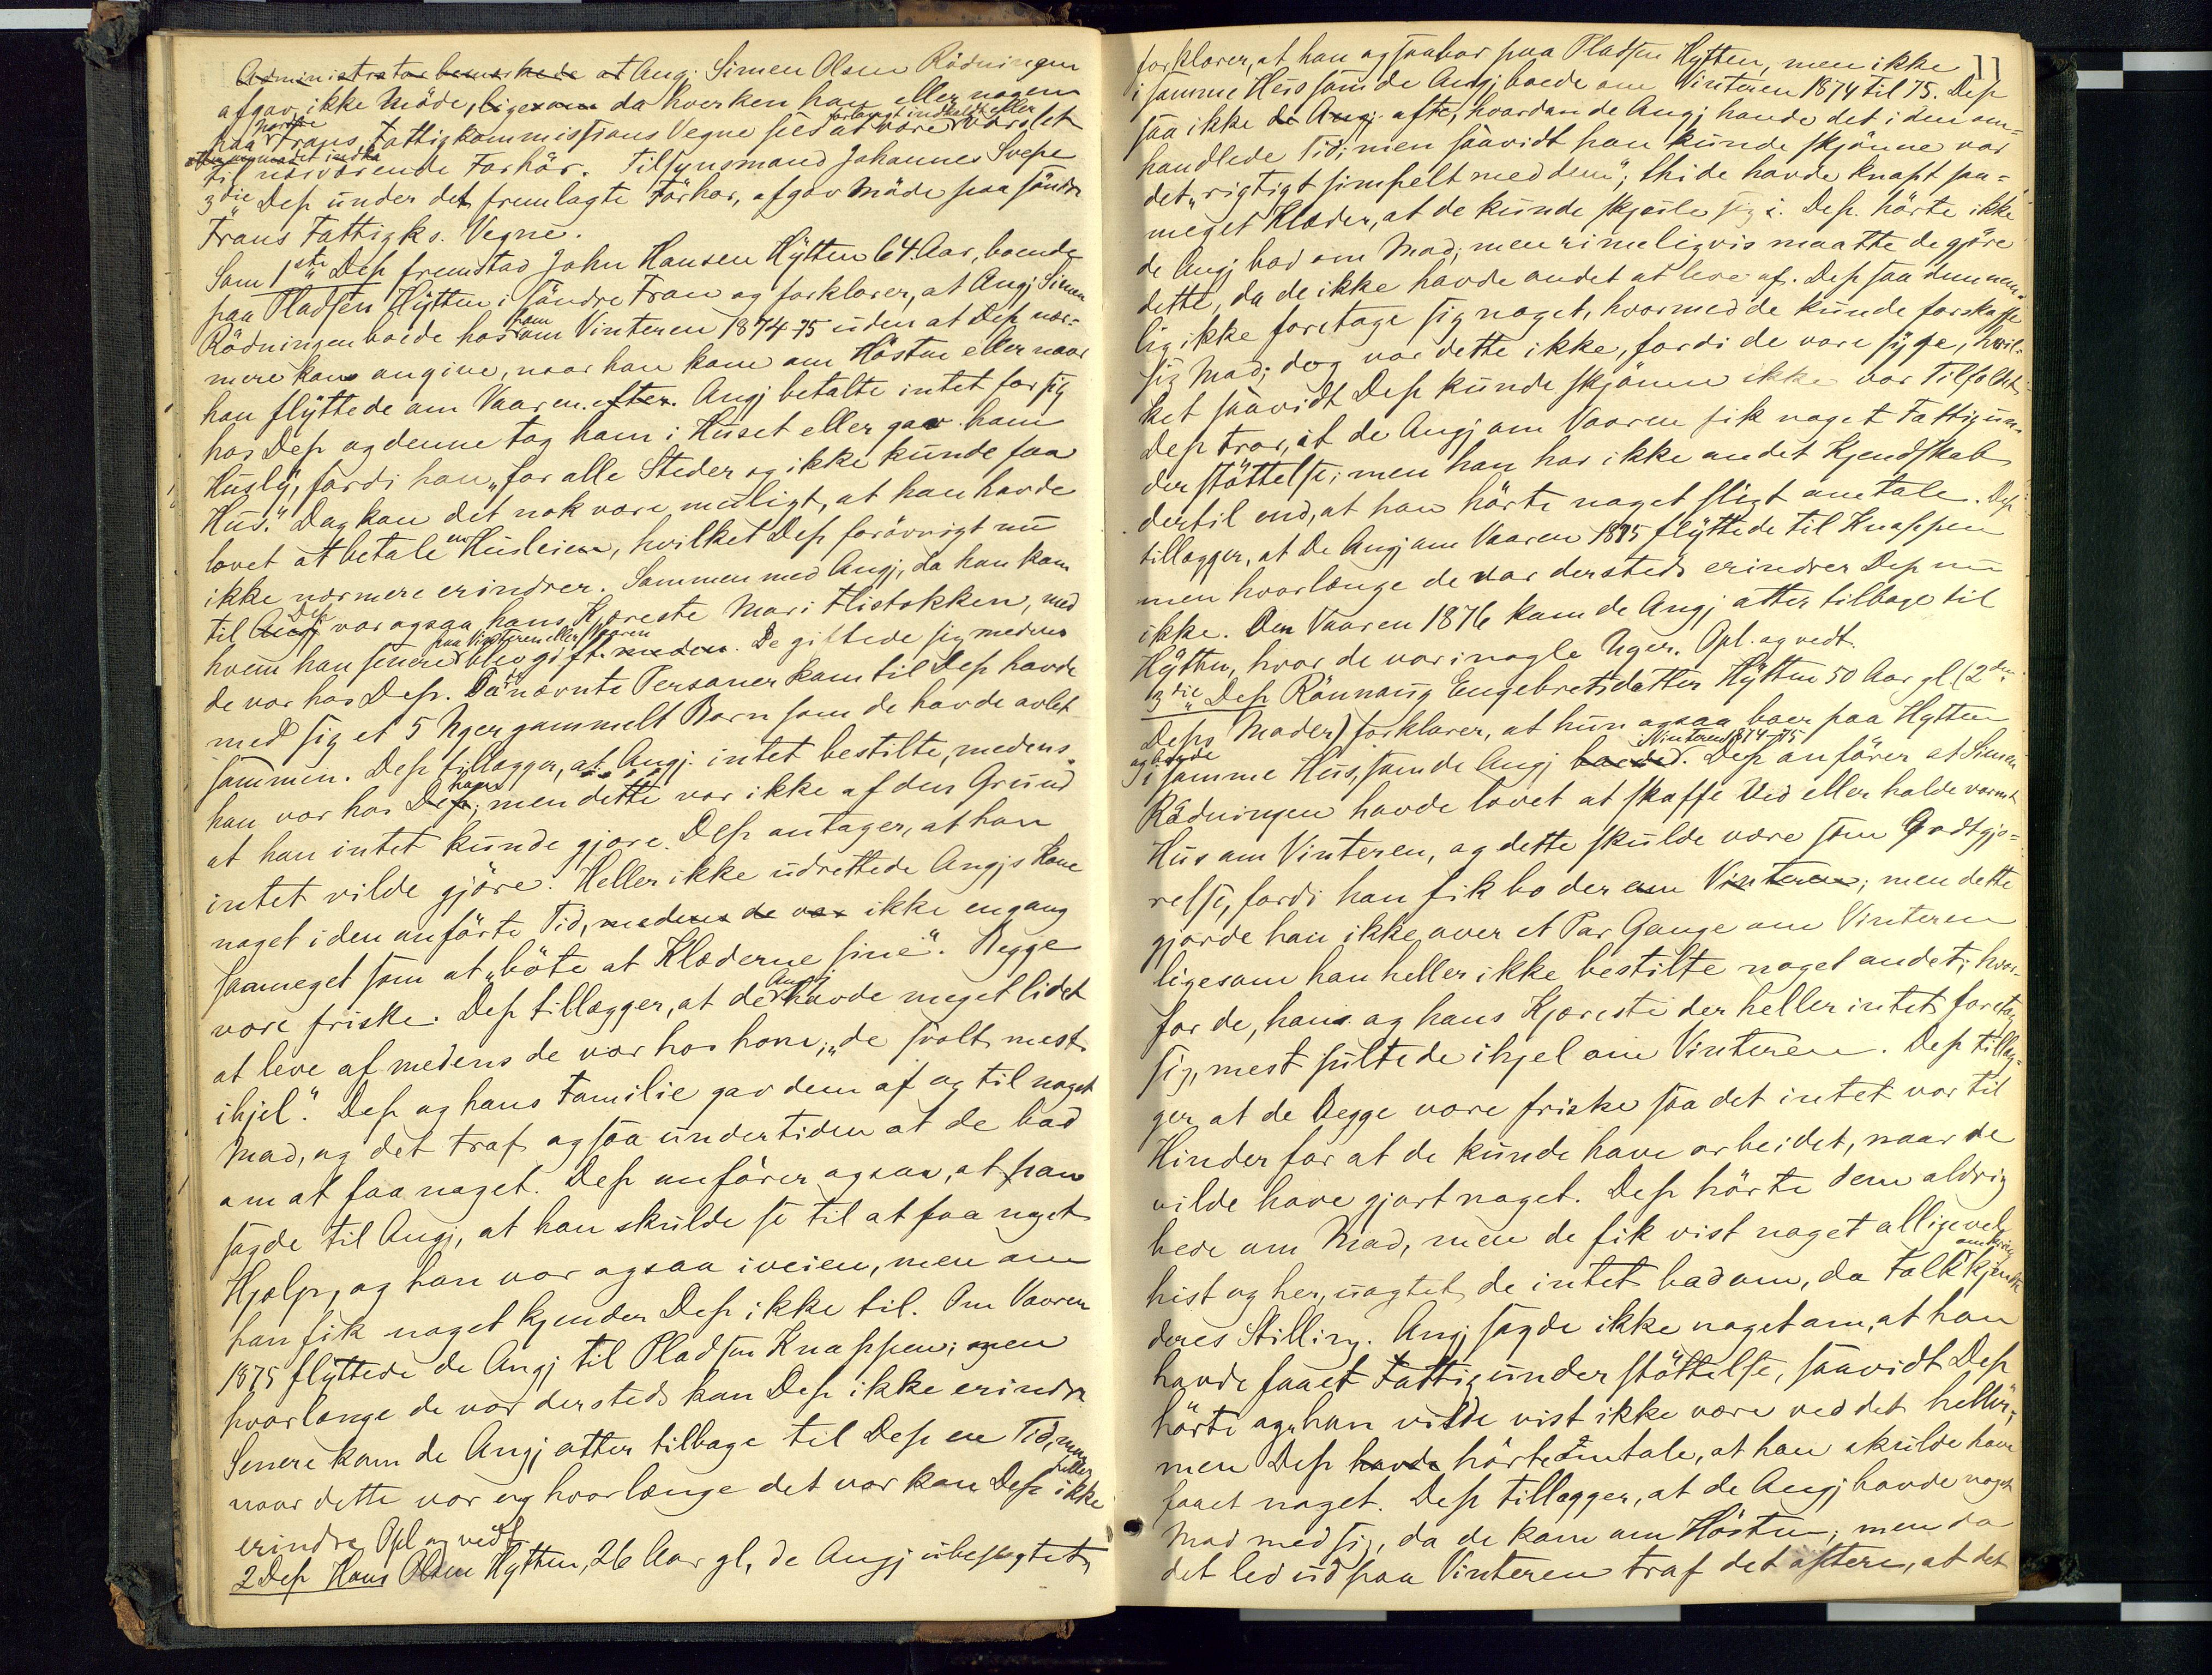 Administrator bemærkede at Ang. Simen Olsen Rödningen
afgav ikke Möde, ligesom da hverken han eller nogen
paa Nordre Frans Fattigkommissions Vegne sees at være forlangt indkaldt eller varslet
til nærværende Forhör. Tilsynsmand Johannes Svepe
3die Dep under det fremlagte Forhör, afgav Möde paa söndre
Frans Fattigks. Vegne.
Som 1ste Dep fremstod John Hansen Hytten 64 Aar, boende
paa Pladsen Hytten i söndre Fran og forklarer, at Angj Simen
Rödningen boede hos ham om Vinteren 1874-75 uden at Dep nær-
mere kan angive, naar han kom om Hösten eller naar
han flyttede om Vaaren efter. Angj betalte intet for sig
hos Dep og denne tog ham i Huset eller gav ham
Husly, fordi han "for alle Steder og ikke kunde faa
Hus." Dog kan det nok være muligt, at han havde
lovet at betale en Husleie, hvilket Dep forövrigt nu
ikke nærmere erindrer. Sammen med Angj, da han kom
til Dep var ogsaa hans Kjæreste Mari Flistokken, med
hvem han senere paa Vinteren eller Vaaren blev gift. De giftede sig medens
de var hos Dep. Da nævnte Personer kom til Dep havde
med sig et 5 Uger gammelt Barn som de havde avlet
sammen. Dep tillægger, at Angj. intet bestilte, medens
han var hos Dep; men dette var ikke af den Grund
at han intet kunde gjöre. Dep antager, at han
intet vilde gjöre. Heller ikke udrettede Angjs Kone
noget i den anförte Tid, medens de var ikke engang
saameget som at "böte at Klæderne sine". Begge
vare friske. Dep tillægger, at de Angj havde meget lidet
at leve af medens de var hos ham; "de svalt mest
ihjel." Dep og hans Familie gav dem af og til noget
Mad, og det traf ogsaa undertiden at de bad
om at faa noget. Dep anförer ogsaa, at han
sagde til Angj, at han skulde se til at faa noget
Hjælp, og han var ogsaa iveien, men om
han fik noget kjender Dep ikke til. Om Vaaren
1875 flyttede de Angj til Pladsen Knappen; men
hvorlænge de var dersteds kan Dep ikke erindre.
Senere kom de Angj atter tilbage til Dep en Tid, men
naar dette var og hvorlænge det var kan Dep heller ikke
erindre Opl og vedt.
2 Dep Hans Olsen Hytten, 26 Aar gl, de Angj ubeslægtet,
11
forklarer, at han ogsaa bor paa Pladsen Hytten, men ikke
i samme Hus som de Angj boede om Vinteren 1874 til 75. Dep
saa ikke de Angj ofte, hvordan de Angj havde det i den om-
handlede Tid; men saavidt han kunde skjönne var
det "rigtigt simpelt med dem"; thi de havde knapt saa-
meget Klæder, at de kunde skjule sig i. Dep. hörte ikke
de Angj bad om Mad; men rimeligvis maatte de gjöre
dette, da de ikke havde andet at leve af. Dep saa dem nem-
lig ikke foretage sig noget, hvormed de kunde forskaffe
sig Mad; dog var dette ikke, fordi de vare syge, hvil-
ket saavidt Dep kunde skjönne ikke var Tilfældet.
Dep tror, at de Angj om Vaaren fik noget Fattigun-
derstöttelse; men han har ikke andet Kjendskab
dertil end, at han hörte noget sligt omtale. Dep
tillægger, at De Angj om Vaaren 1875 flyttede til Knappen
men hvorlænge de var dersteds erindrer Dep nu
ikke. Den Vaaren 1876 kom de Angj atter tilbage til
Hytten, hvor de var i nogle Uger. Opl. og vedt.
3die Dep Rönnaug Engebretsdatter Hytten 50 Aar gl (2den
Deps Moder) forklarer, at hun ogsaa boer paa Hytten
og boede i samme Hus, som de Angj boede Vinteren 1874-75. Dep anförer at Simen
Rödningen havde lovet at skaffe Ved eller holde varmt
Hus om Vinteren, og dette skulde være som Godtgjö-
relse, fordi han fik bo der om Vinteren; men dette
gjorde han ikke over et Par Gange om Vinteren
ligesom han heller ikke bestilte noget andet; hvor-
for de, han og hans Kjæreste der heller intet foretog
sig, mest sultede ihjel om Vinteren. Dep tillæg-
ger at de Begge vare friske saa det intet var til
Hinder for at de kunde have arbeidet, naar de
vilde have gjort noget. Dep hörte dem aldrig
bede om Mad, men de fik vist noget alligevel
hist og her, uagtet de intet bad om, da Folk omkring kjendte
deres Stilling. Angj sagde ikke noget om, at han
havde faaet Fattigunderstöttelse, saavidt Dep
hörte og han vilde vist ikke være ved det heller;
men Dep havde hörte omtale, at han skulde have
faaet noget. Dep tillægger, at de Angj havde noget
Mad med sig, da de kom om Hösten; men da
det led ud paa Vinteren traf det oftere, at det